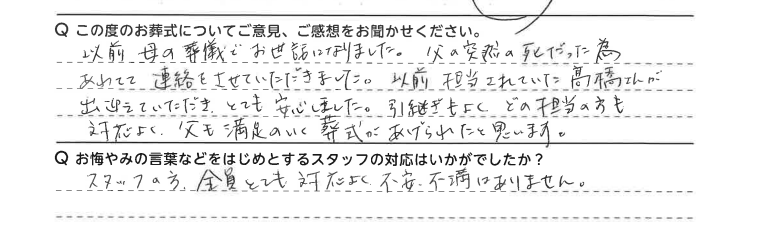 Q この度のお葬式についてご意見、ご感想をお聞かせください。
以前 母の葬儀でお世話になりました。父の突然の死だった為
あわてて連絡をさせていただきました。以前担当されていた高橋さんが
出迎えていただき、とても安心しました。引継ぎもよく どの担当の方も
対応よく、父も満足のいく葬式があげられたと思います。
Q お悔やみの言葉などをはじめとするスタッフの対応はいかがでしたか？
スタッフの方、全員とても対応よく 不安、不満はありません。